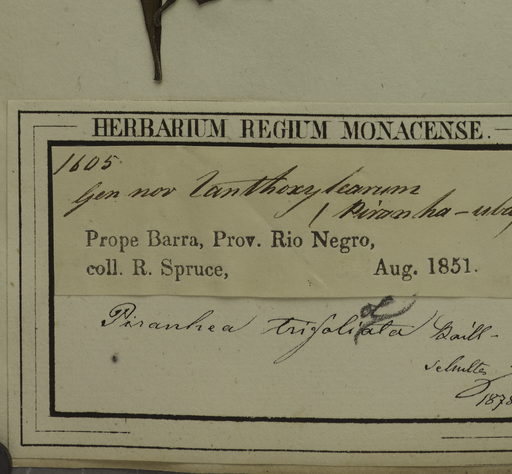 HERBARIUM REGIUM MONACENSE.
1605.
Gen nov Xanthoxylearum
(Piranha-uba
Prope Barra, Prov. Rio Negro,
coll. R. Spruce, Aug. 1851.
Piranhea trifoliata Baill-
Schultes
1878